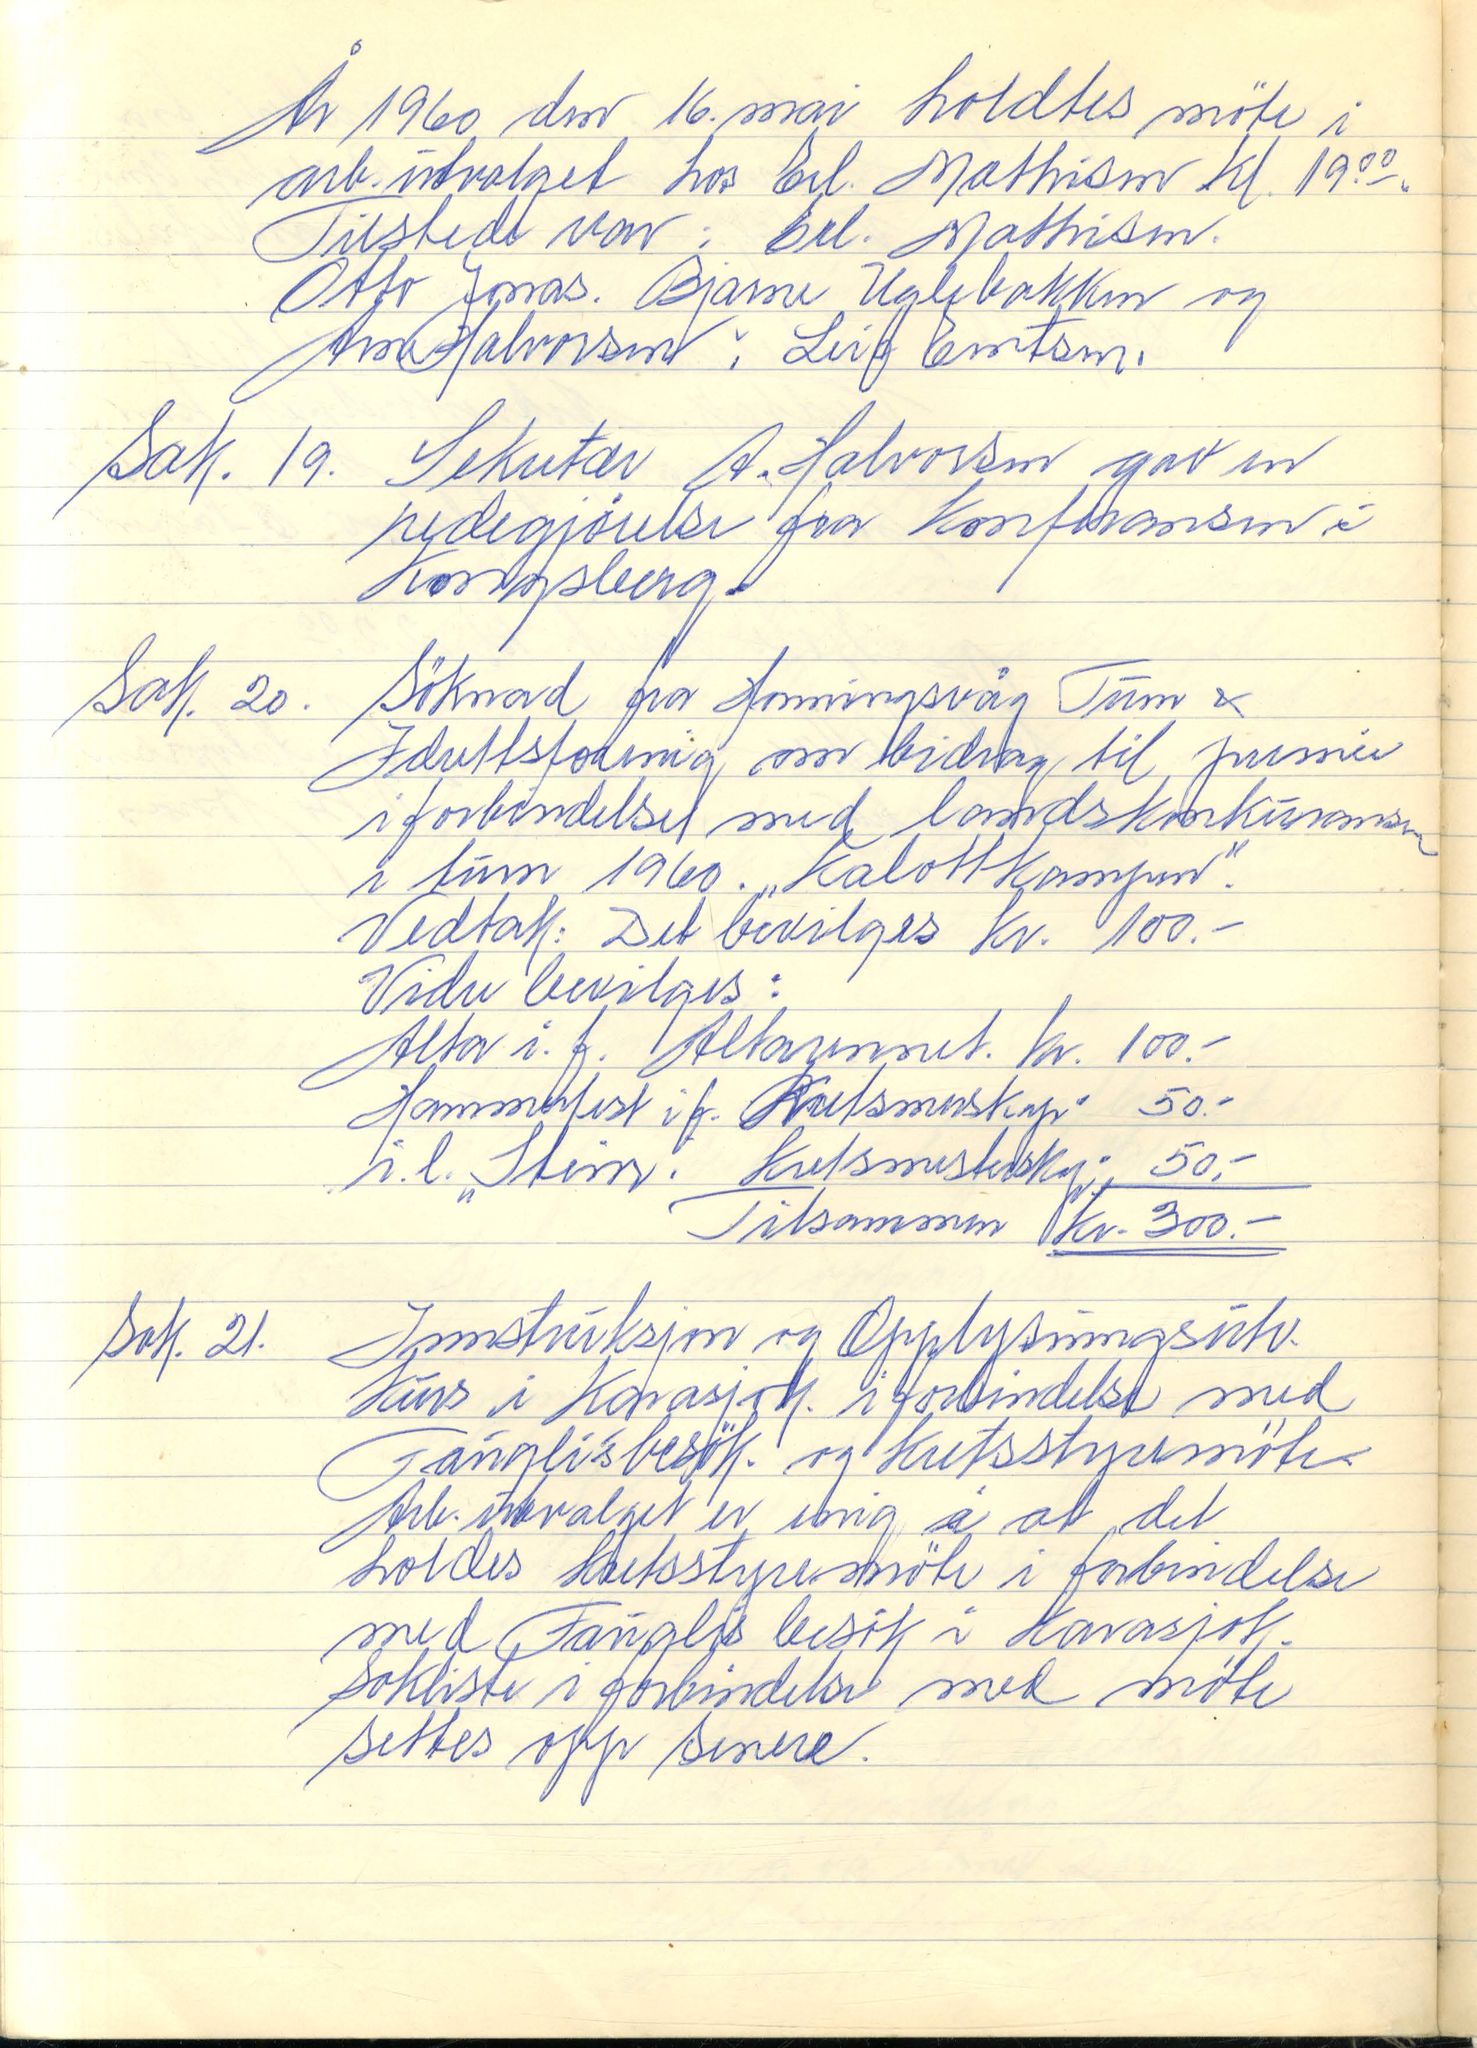 År 1960 den 16. mai holdtes möte i
arb. utvalget hos Erl. Mathisen kl. 19⁰⁰.
Tilstede var: Erl. Mathisen.
Otto Jonas. Bjarne Uglebakken og
Arne Halvorsen, Leif Evertsen.
Sak. 19. Sekretær A. Halvorsen gav en
redegjörelse fra Konferansen i
Kongsberg.
Sak. 20. Söknad fra Honningsvåg Turn &
Idrettsforenig om bidrag til premier
i forbindelse med landskonkuransen
i turn 1960. „Kalottkampen".
Vedtak: Det bevilges kr. 100.-
Vider bevilges:
Alta i.f. Altarennet. kr. 100.-
Hammerfest i f. Kretsmerskap " 50.-
i.l. „Stein". Kretsmesterskap " 50.-
Tilsammen kr. 300.-
Sak. 21. Innstruksjon og Opplysningsutv.
kurs i Karasjok. i forbindelse med
Fanglis besök. og kretsstyremöte
Arb. utvalget er enig i at det
holdes kretsstyremöte i forbindelse
med Fanglis besök i Karasjok.
Sakliste i forbindelse med möte
settes opp senere.